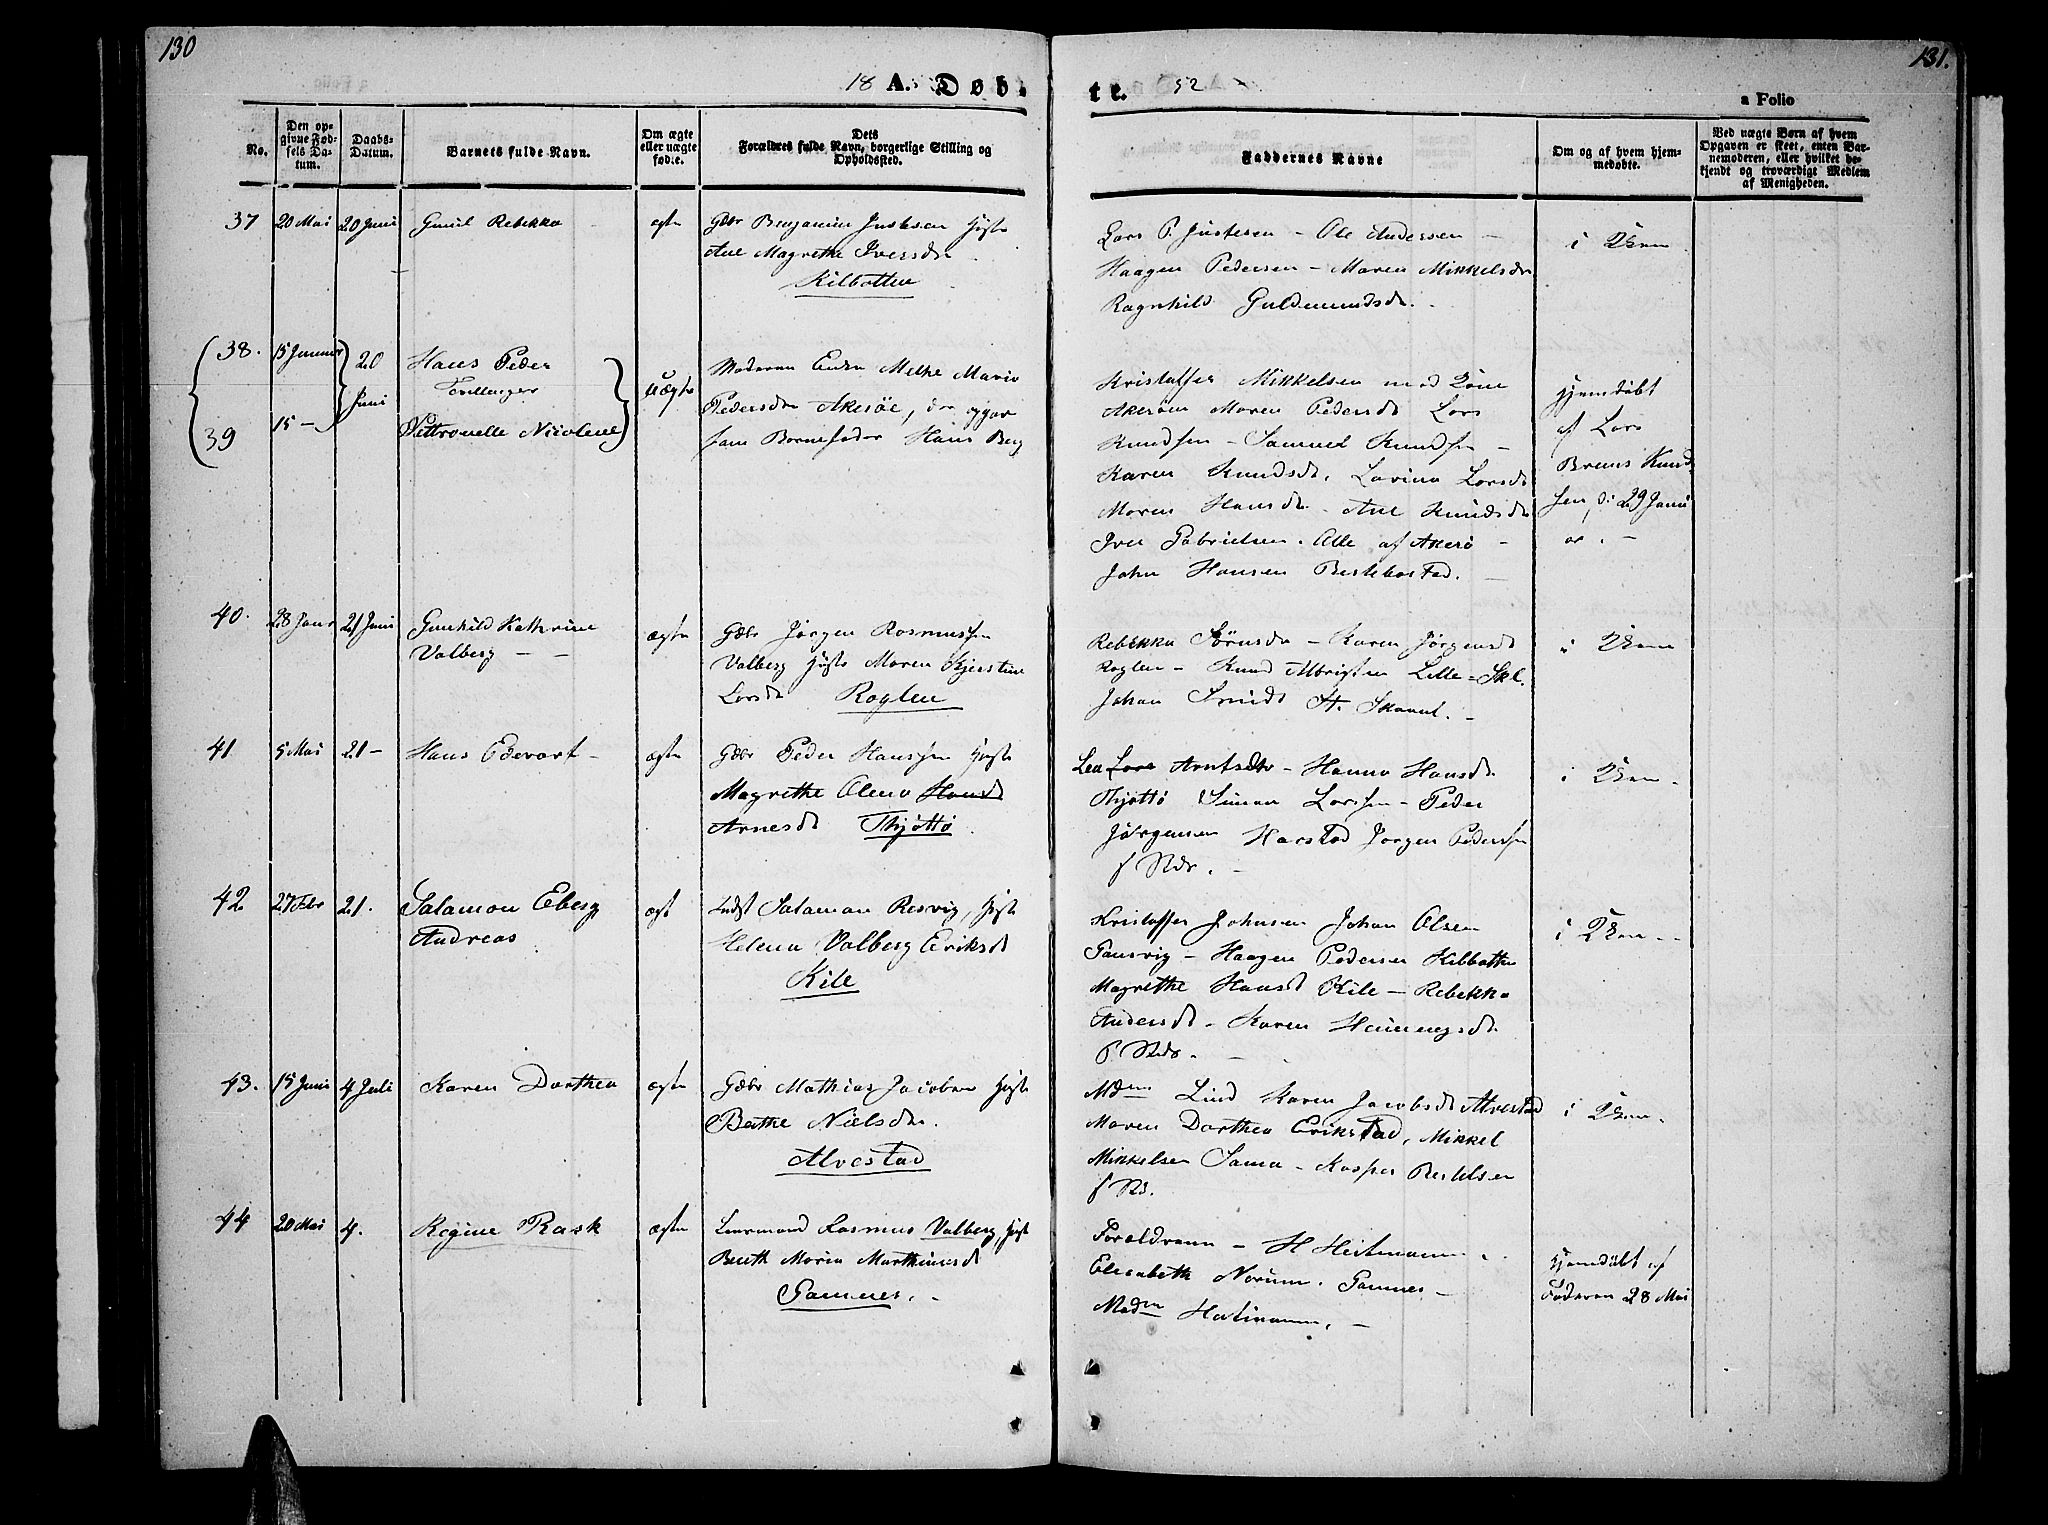 130
131.
18 A. Døb-
te. 52
a Folio
No.
Den op-
givne Fød-
sels Da-
tum.
Daabs-
Datum.
Barnets fulde Navn.
Om ægte
eller uægte
født.
Dets
Forældres fulde Navn, borgerlige Stilling og
Opholdssted.
Faddernes Navne
Om og af hvem hjem-
medøbte.
Ved uægte Børn af hvem
Opgaven er skeet, enten Bar-
nemoderen, eller hvilket be-
kjendt og troværdigt Medlem
af Menigheden.
37 20 Mai 20 Juni Gunil Rebekka ægte
Gbr Benjamin Justesen Hust
Ane Magrethe Iversdr
Kilbotten
Lars P. Justesen - Ole Andersen -
Haagen Pedersen - Maren Mikkelsdr
Ragnhild Guldmundsdr.
i Kken
38. 15 Januar 20 Juni Hans Peder
Tvillinger
39 15 - Pettronelle Nicoline
uægte
Moderen Enke Melke Marie
Pedersdr Akerøe, opgav
som Barnefader Hans Berg
Kristoffer Mikkelsen med Kone
Akerøen Maren Pedersdr Lars
Knudsen - Samuel Knudsen -
Karen Knudsdr. Lavina Larsdr
Maren Hansdr. Ane Knudsdr
Iver Gabrielsen. Alle af Akerø -
John Hansen Bestebostad. -
hjemdøbt
af Lars
Brems Knud-
sen, d. 29 Janu
ar. -
40. 28 Janr 21 Juni Gunhild Kathrine
Valberg - -
ægte
Gbr Jørgen Rasmussen
Valberg Hust Maren Kjerstine
Larsdr Roglen
Rebekka Sørensdr - Karen Jørgensdr
Roglen - Knud Albrigtsen Lille-Skl.
Johan Smidt St. Skaanl. -
i Kken
41 5 Mai 21 - Hans Edevart - ægte
Gbr Peder Hanssen Hust
Magrethe Olena Hansdr
Arnesdr Thjøttø.
Lea Lars Arntsdtr - Hanna Hansdr
Thjøttø Simon Larssen - Peder
Jørgensen Harstad Jørgen Pederssen
f Stds. -
i Kken -
42 27 Febr 21. Salamon Eberg
Andreas
ægt
Indst Salamon Resvig, Hust
Helena Valberg Eriksdr
Kile
Kristoffer Johnsen Johan Olsen
Gansvig - Haagen Pedersen Kilbotten
Magrethe Hansd Kile - Rebekka
Andersdr - Karen Henningsdr
f. Stds. -
i Kken -
43. 15 Juni 4 Juli Karen Dorthea ægte
Gbr Mathias Jacobsen Hust
Berthe Nielsdr.
Alvestad
Mdm Lind Karen Jacobsdr Alvestad
Maren Dorthea Erikstad, Mikkel
Mikkelsen Sama - Kasper Bertelsen
f Sts.
i Kken.
44 20 Mai 4. Regine Rask ægte
Lensmand Rasmus Valberg, Hust
Berith Maria Marthinusdr
Gannes. -
Forældrene - H Heitmann
Elisabeth Norum. Gannes -
Madm Heitmann. -
hjemdøbt af
Faderen 28 Mai